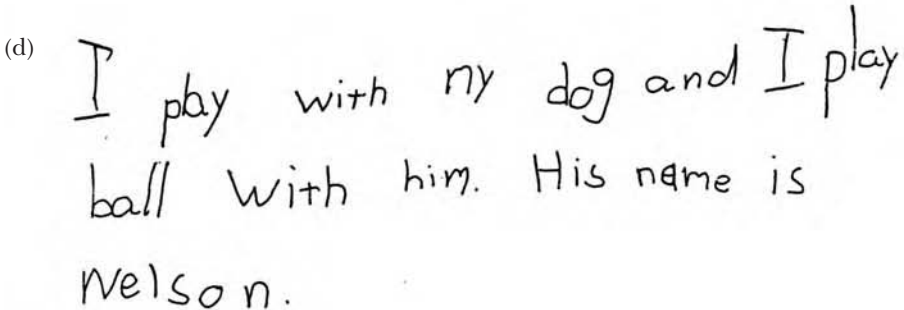 (d) I play with ny dog and I play
ball with him. His name is
Nelson.